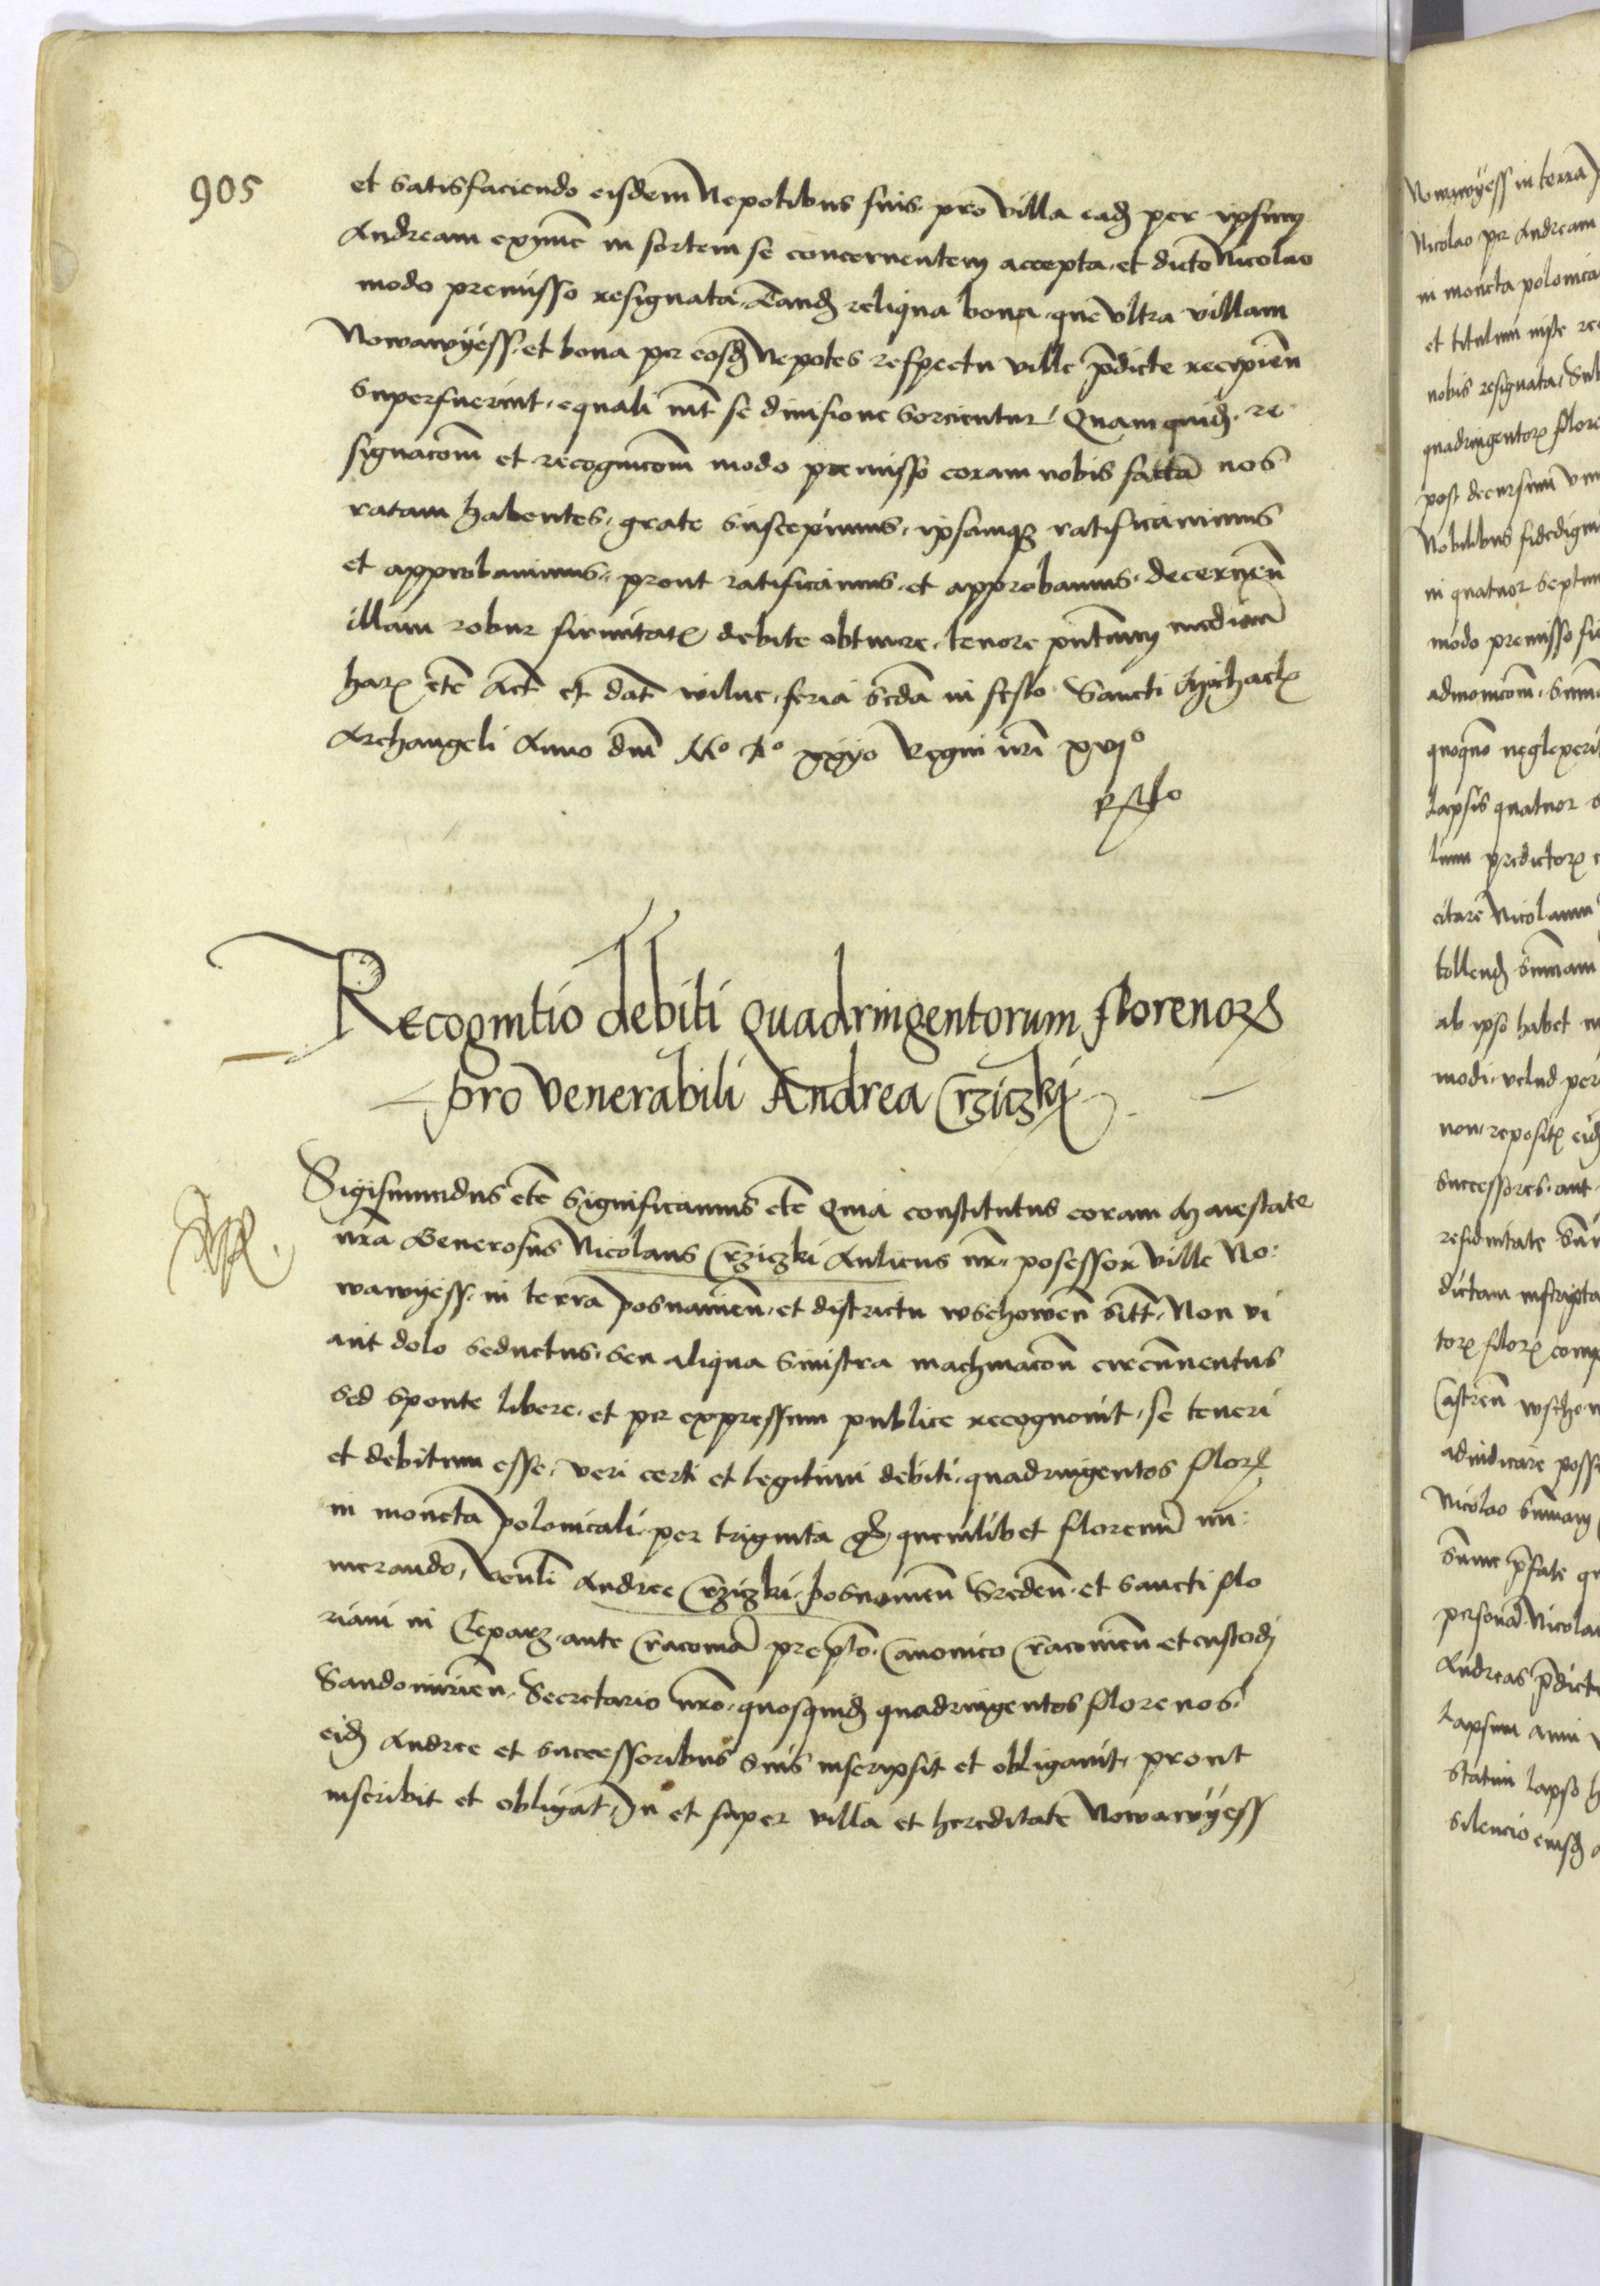 905
et satisfaciendo eisdem Nepotibus suis pro villa eadẜ per ipsum
Andream exnunc in sortem se concernentem accepta et dicto Nicolao
modo premisso resignata. Tandẜ reliqua bona que vltra villam
Nowawyess et bona per eosdẜ Nepotes respectu ville p̄dicte recipien̄
superfuerint equali int̄ se diuisione sorcientur. Quamquidẜ re
signacōm et recognicōm modo premisso coram nobis factā nos
ratam habentes grate suscepimus ipsamqꝫ ratificauimus
et approbauimus prout ratificamus et approbamus decernen̄
illam robur firmitatꝭ debite obtinere tenore pn̄tium median̄
harꝝ etc̄ Act̄ et dat̄ wilne feria sc̄da in festo Sancti Michaelꝭ
Archangeli Anno dn̄i Mo do xxijo Regni nr̄i xvjo
Recognitio debiti quadringentorum florenorꝝ
pro venerabili Andrea Crziczki
Sigismundus etc̄ Significamus etc̄ Quia constitutus coram Maiestate
nr̄a Generosus Nicolaus Crziczki Aulicus nr̄ posessor ville No:
wawyess in terra posnanien̄ et districtu wschowen̄ sitt̄ Non vi
aut dolo seductus seu aliqua sinistra machinacōn circumuentus
sed sponte libere et per expressum publice recognouit se teneri
et debitum esse veri certi et legitimi debiti quadringentos florꝭ
in moneta polonicali per triginta gꝭ quemlibet florenū nu:
merando, venli Andree Crziczki posnanien̄ Sreden̄ et sancti flo
riani in Cleparz ante Cracouiā prepto Canonico Cracouien̄ et custodj
Sandomirien̄ Secretario nr̄o quosquidẜ quadringentos florenos
eidẜ Andree et successoribus suis inscripsit et obligauit prout
inscribit et obligat In et super villa et hereditate Nowawyess
Nowawyess in terra
Nicolao per Andream
in moneta polonica
et titulum iuste re
nobis resignata Sub
quadringentorꝝ flore
post decursum vn
Nobilibus fidedign
in quatuor septim
modo premisso
admonicōm
neglexeri
lapsis quatuor
predictorꝝ
citare Nicolaum
tollendẜ summam
ab ipso habet
modi velud per
non repositꝭ
successores aut
dictam inscripta
torꝝ florꝝ comp
Castren̄ wscho
adiudicare poss
Nicolao summam
summe p̄fate
personā Nicola
Andreas p̄dict
lapsum anni
statim lapso
silencio